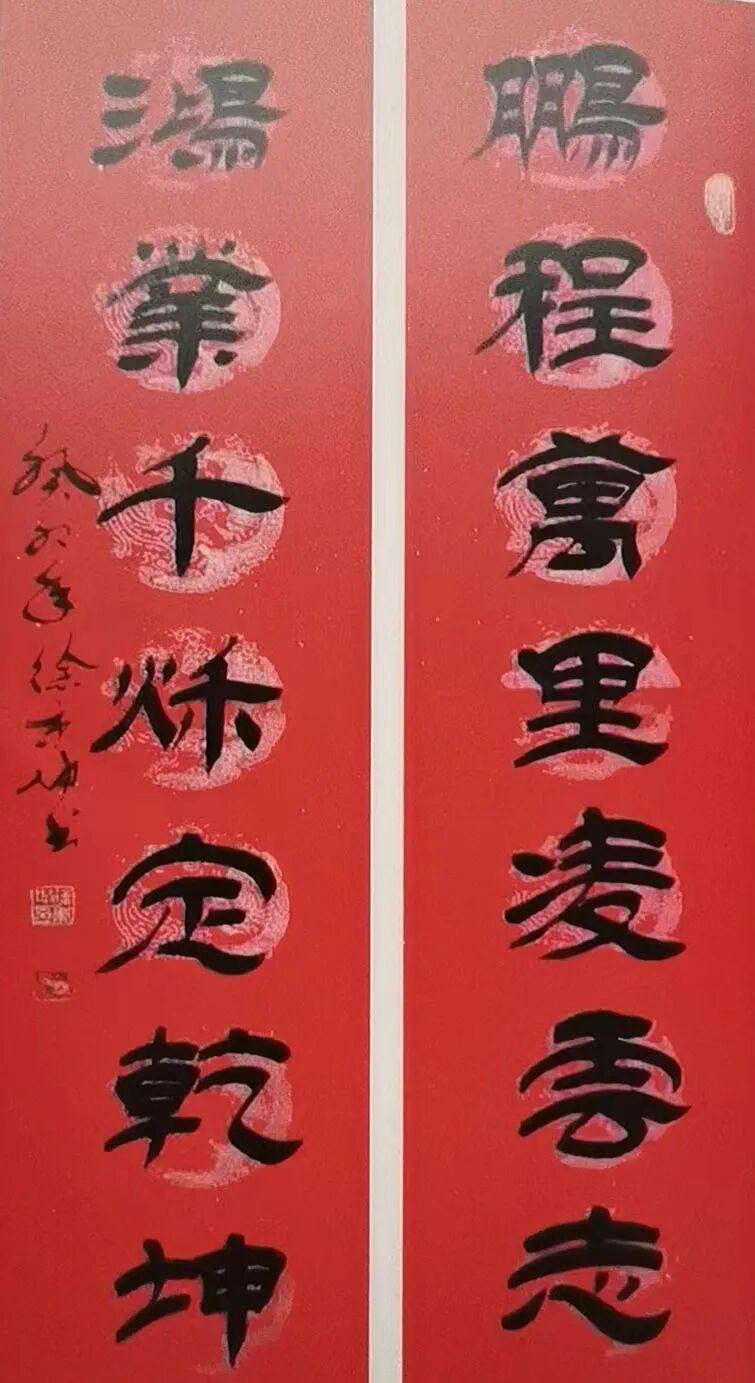 鵬程萬里凌雲志
鴻業千烁定乾坤
癸卯年徐書